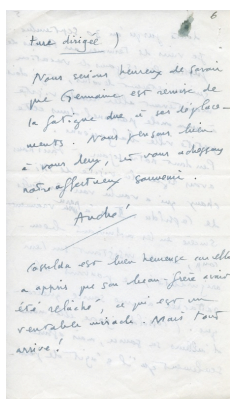 6
ture dirigée)
Nous serions heureux de savoir
que Germaine est remise de
la fatigue due à ses déplace-
ments. Nous pensons bien
à vous deux, et vous adressons
notre affectueux souvenir.
André
Casilda est bien heureuse car elle
a appris que son beau-frère avait
été relâché, ce qui est un
véritable miracle. Mais tout
arrive!